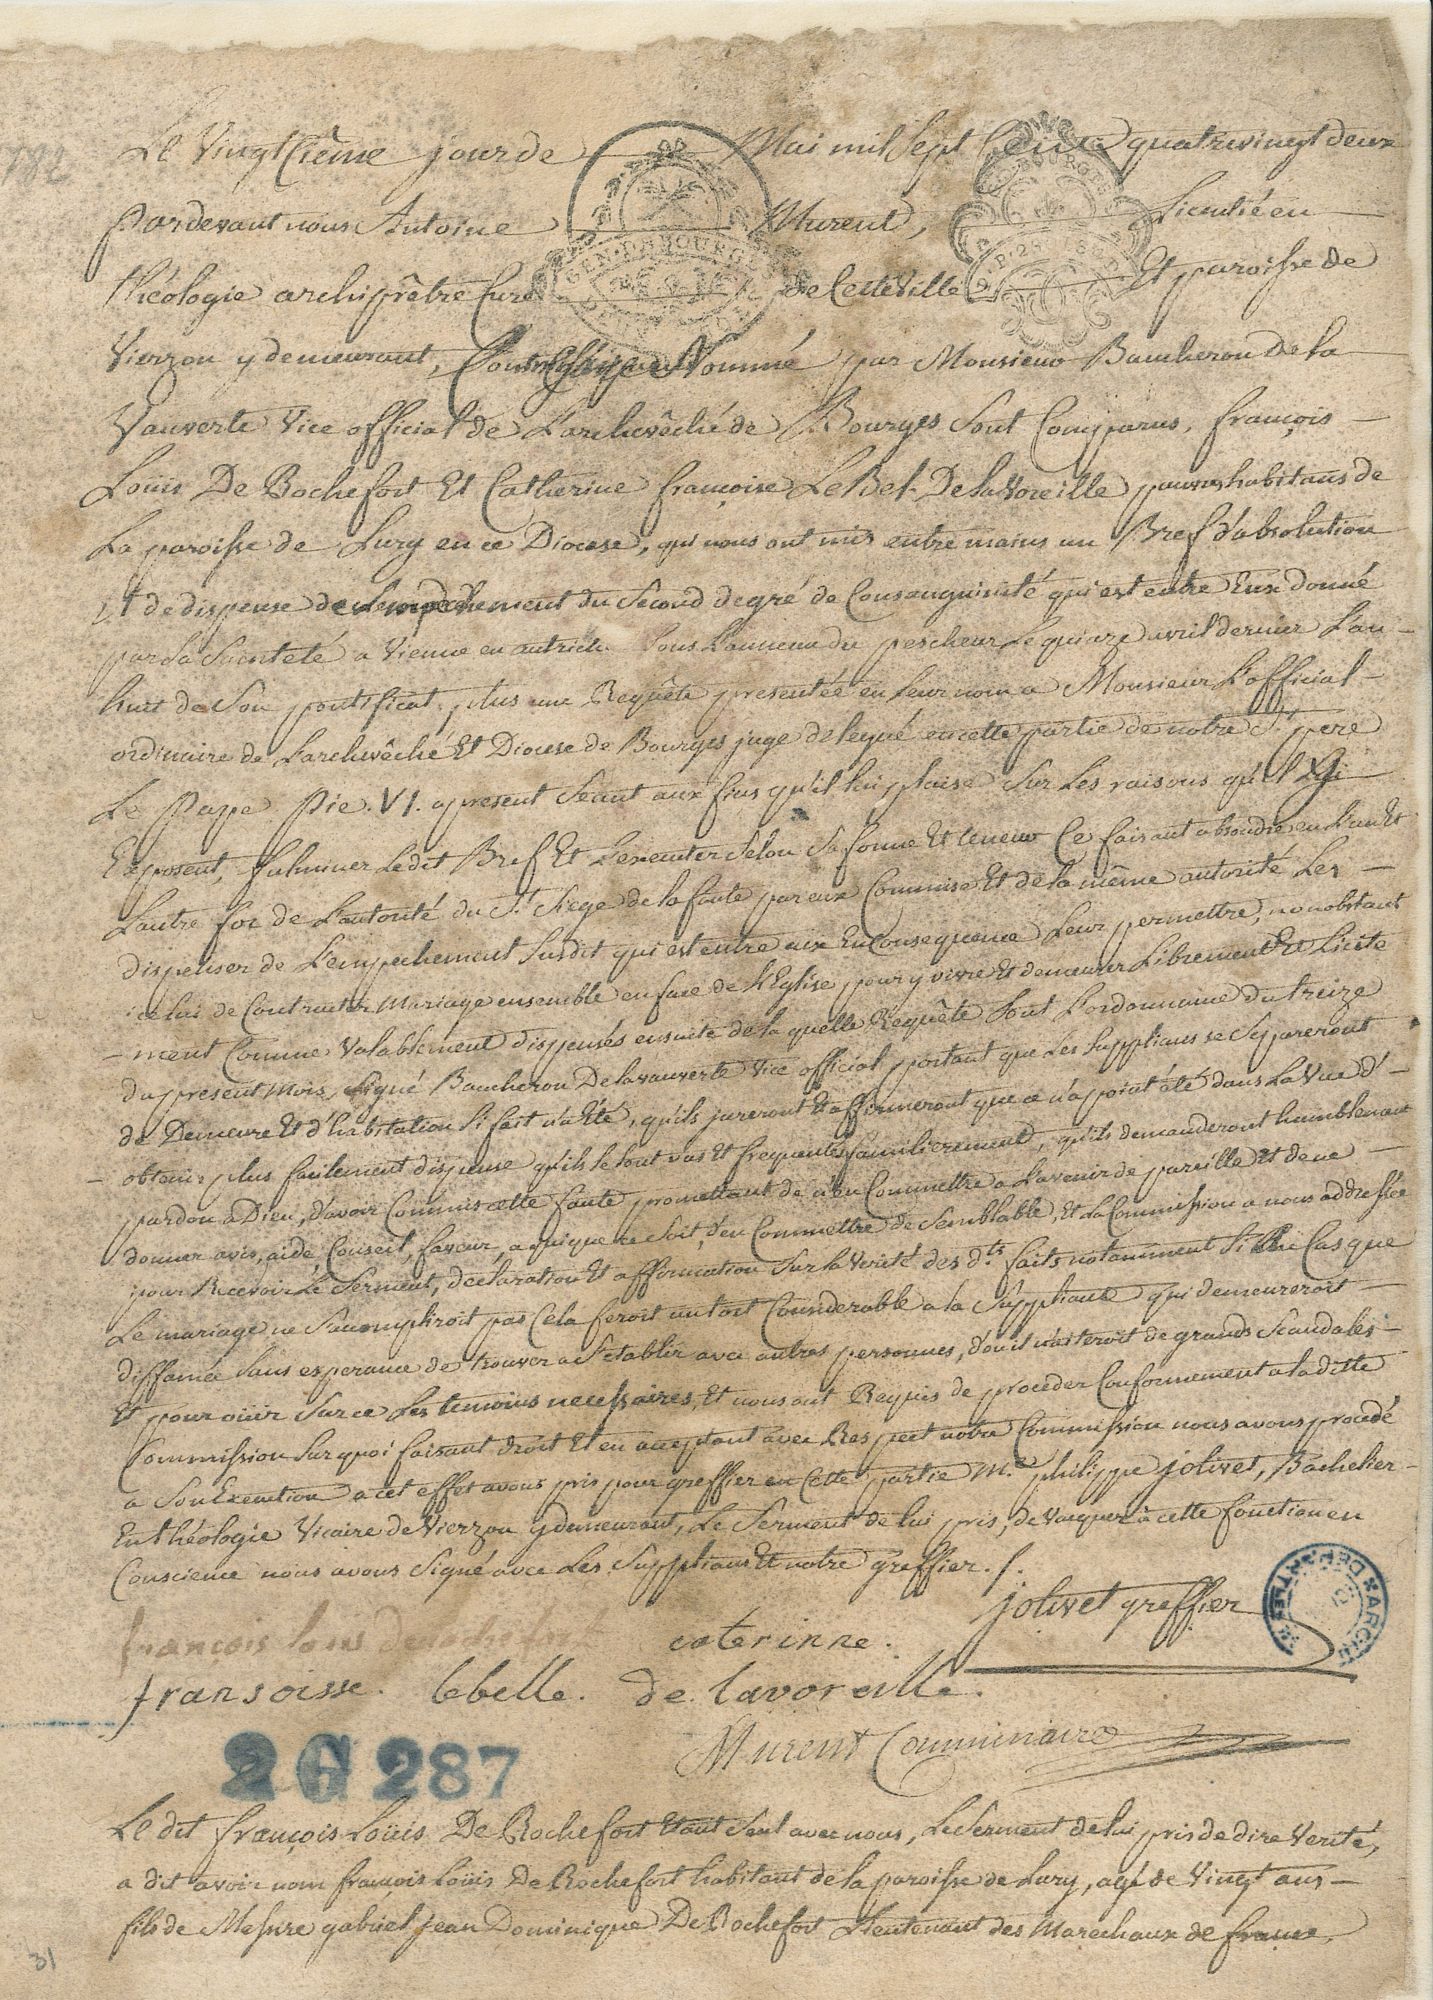 1782
Le Vingtième jour de Mai mil Sept Cent quatrevingt deux
Pardevant nous Antoine Murent, Licentié en
théologie archiprêtre Curé de Cette Ville Et paroisse de
Vierzon y demeurant, Commissaire Nommé par Monsieur Baucheron De la
Vauverte Vice official de L'archevêché de Bourges Sont Comparus, françois
Loüis De Rochefort Et Catherine françoise LeBel De LaVoreille pauvres habitans de
La paroisse de Lury en ce Diocese, qui nous ont mis entre mains un Bref d'absolution
Et de dispense de L'empêchement du Second degré de Consanguinité qui est entre Eux donné
par Sa Sainteté a Vienne en autriche Sous L'anneau du pescheur Le quinze avril dernier L'an
huit de Son pontificat, plus une Requête presentée en leur nom a Monsieur L'official
ordinaire de L'archevêché Et Diocese de Bourges juge delegué en cette partie de notre St. pere
Le Pape Pie. VI. apresent Séant aux fins qu'il lui plaise Sur Les raisons qu'il
Exposent, fulminer Ledit Bref Et L'executer Selon Sa forme Et teneur Ce faisant absoudre en L'un Et
L'autre for de L'autorité du St. Siege de la faute par eux Commise Et de la même autorité Les
dispenser de L'empechement Susdit qui est entre eux En Consequence Leur permettre, nonobstant
icelui de Contracter Mariage ensemble en face de L'Eglise pour y vivre Et demeurer Librement Et Licite
-ment Comme Valablement dispensés ensuite de la quelle Requête Sont L'ordonnance du treize
du present mois, Signé Baucheron De lavauverte Vice official portant que Les Supplians se Separeront
de Demeure Et d'habitation Si fait n'a Eté, qu'ils jureront Et affirmeront que ce n'a point été dans La Vue d'
obtenir plus facilement dispense qu'ils se sont vus Et frequentés familierement, qu'ils demanderont humblement
pardon à Dieu, d'avoir Commis cette faute promettant de n'en Commettre a L'avenir de pareille Et de ne
donner avis, aide, Conseil, faveur, a quique ce Soit, d'en Commettre de Semblable, Et La Commission a nous addressée
pour Recevoir Le Serment, declaration Et affirmation Sur la Verité des dts. faits notamment Si En Cas que
Le mariage ne S'accompliroit pas Cela feroit un tort Considerable a la Suppliante qui demeureroit
diffamée Sans esperance de trouver a S'etablir avec autres personnes, d'ou il naiteroit de grands Scandales
Et pour oüir Sur ce Les temoins necessaires, Et nous ont Requis de proceder Conformement a la ditte
Commission Sur quoi faisant droit Et en acceptant avec Respect notre Commission nous avons procedé
a Son Execution a cet effet avons pris pour greffier en Cette partie Me. philippe jolivet, Bachelier
En théologie Vicaire de Vierzon y demeurant, Le Serment de lui pris, de Vacquer à cette fonction en
Conscience nous avons Signé avec Les Supplians Et notre greffier.
jolivet greffier
françois louis de rochefort caterinne.
fransoisse. lebelle. de. lavoreille.
Murent Commissaire
2G 287
Le dit françois Loüis De Rochefort Etant Seul avec nous, Le Serment de lui pris de dire Verité,
a dit avoir nom françois Loüis De Rochefort habitant de la paroisse de Lury, agé de Vingt ans
fils de Messire gabriel jean Dominique De Rochefort Lieutenant des Marechaux de france,
31